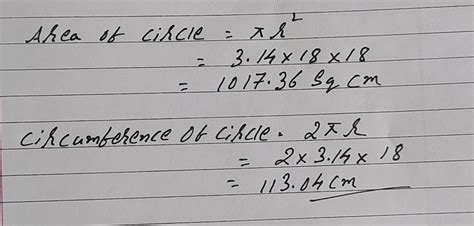 Area of circle = πr²
= 3.14 × 18 × 18
= 1017.36 Sq Cm
Circumference Of Circle = 2πr
= 2 × 3.14 × 18
= 113.04 Cm